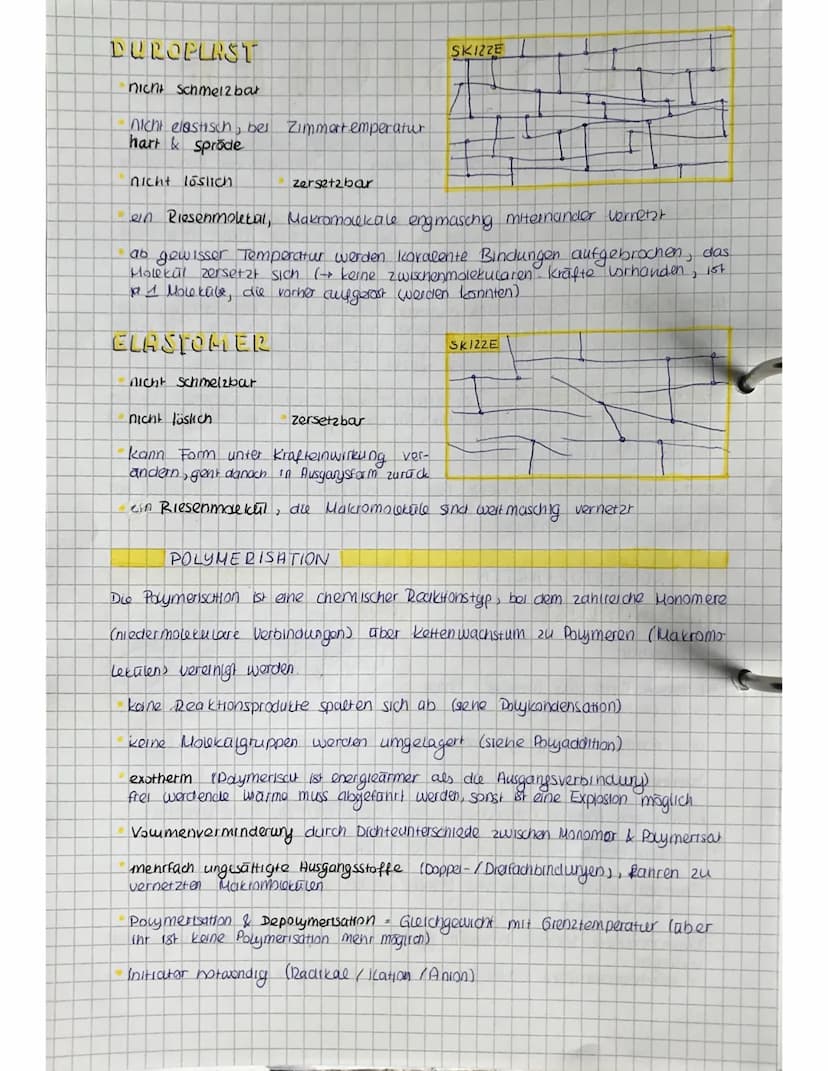 DUROPLAST
SKIZZE
• nicht schmelzbar
• nicht elastisch, bei Zimmertemperatur
hart & spröde
• nicht löslich • zersetzbar
• ein Riesenmolekül, Makromoleküle engmaschig miteinander vernetzt
• ab gewisser Temperatur werden kovalente Bindungen aufgebrochen, das
Molekül zersetzt sich (→ keine zwischenmolekularen Kräfte vorhanden, ist
1 Moleküle, die vorher aufgelöst werden könnten)
ELASTOMER
SKIZZE
• nicht schmelzbar
• nicht löslich • zersetzbar
• kann Form unter Krafteinwirkung ver-
ändern, geht danach in Ausgangsform zurück
• ein Riesenmolekül, die Makromoleküle sind weitmaschig vernetzt
POLYMERISATION
Die Polymerisation ist eine chemischer Reaktionstyp, bei dem zahlreiche Monomere
(niedermolekulare Verbindungen) über Kettenwachstum zu Polymeren (Makromo-
lekülen) vereinigt werden.
• keine Reaktionsprodukte spalten sich ab (siehe Polykondensation)
• keine Molekülgruppen werden umgelagert (siehe Polyaddition)
• exotherm (Polymerisat ist energieärmer als die Ausgangsverbindung)
frei werdende Wärme muss abgeführt werden, sonst ist eine Explosion möglich
• Volumenverminderung durch Dichteunterschiede zwischen Monomer & Polymerisat
• mehrfach ungesättigte Ausgangsstoffe (Doppel-/Dreifachbindungen), führen zu
vernetzten Makromolekülen
• Polymerisation & Depolymerisation = Gleichgewicht mit Grenztemperatur (über
ihr ist keine Polymerisation mehr möglich)
• Initiator notwendig (Radikal / Kation / Anion)